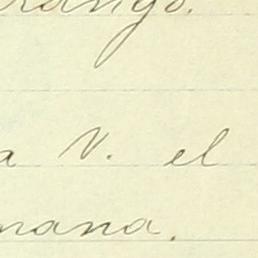 rango.
a V. el
mana.